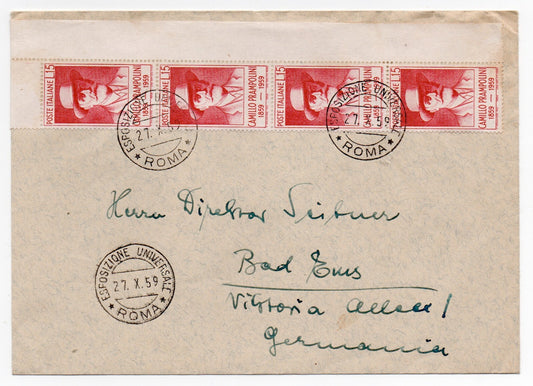 POSTE ITALIANE L.15 CAMILLO PRAMPOLINI 1859 — 1959
POSTE ITALIANE L.15 CAMILLO PRAMPOLINI 1859 — 1959
POSTE ITALIANE L.15 CAMILLO PRAMPOLINI 1859 — 1959
POSTE ITALIANE L.15 CAMILLO PRAMPOLINI 1859 — 1959
ESPOSIZIONE UNIVERSALE
27.X.59
★ ROMA ★
ESPOSIZIONE UNIVERSALE
27.X.59
★ ROMA ★
Herrn Direktor Seibner
Bad Ems
Viktoria Allee 1
Germania
ESPOSIZIONE UNIVERSALE
27.X.59
★ ROMA ★